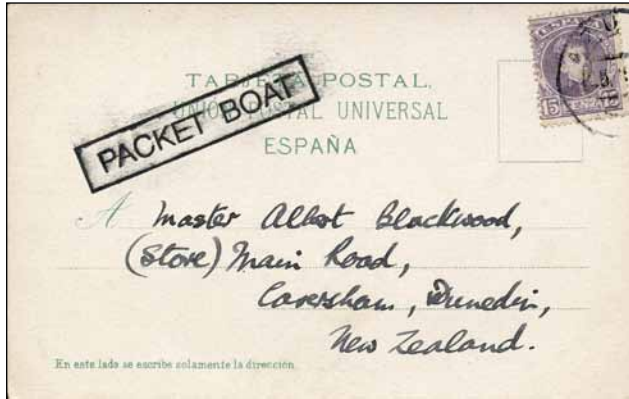 TARJETA POSTAL.
UNION POSTAL UNIVERSAL
ESPAÑA
PACKET BOAT
15 15
A Master Albert Blackwood,
(Store) Main Road,
Caversham, Dunedin,
New Zealand.
En este lado se escribe solamente la dirección.